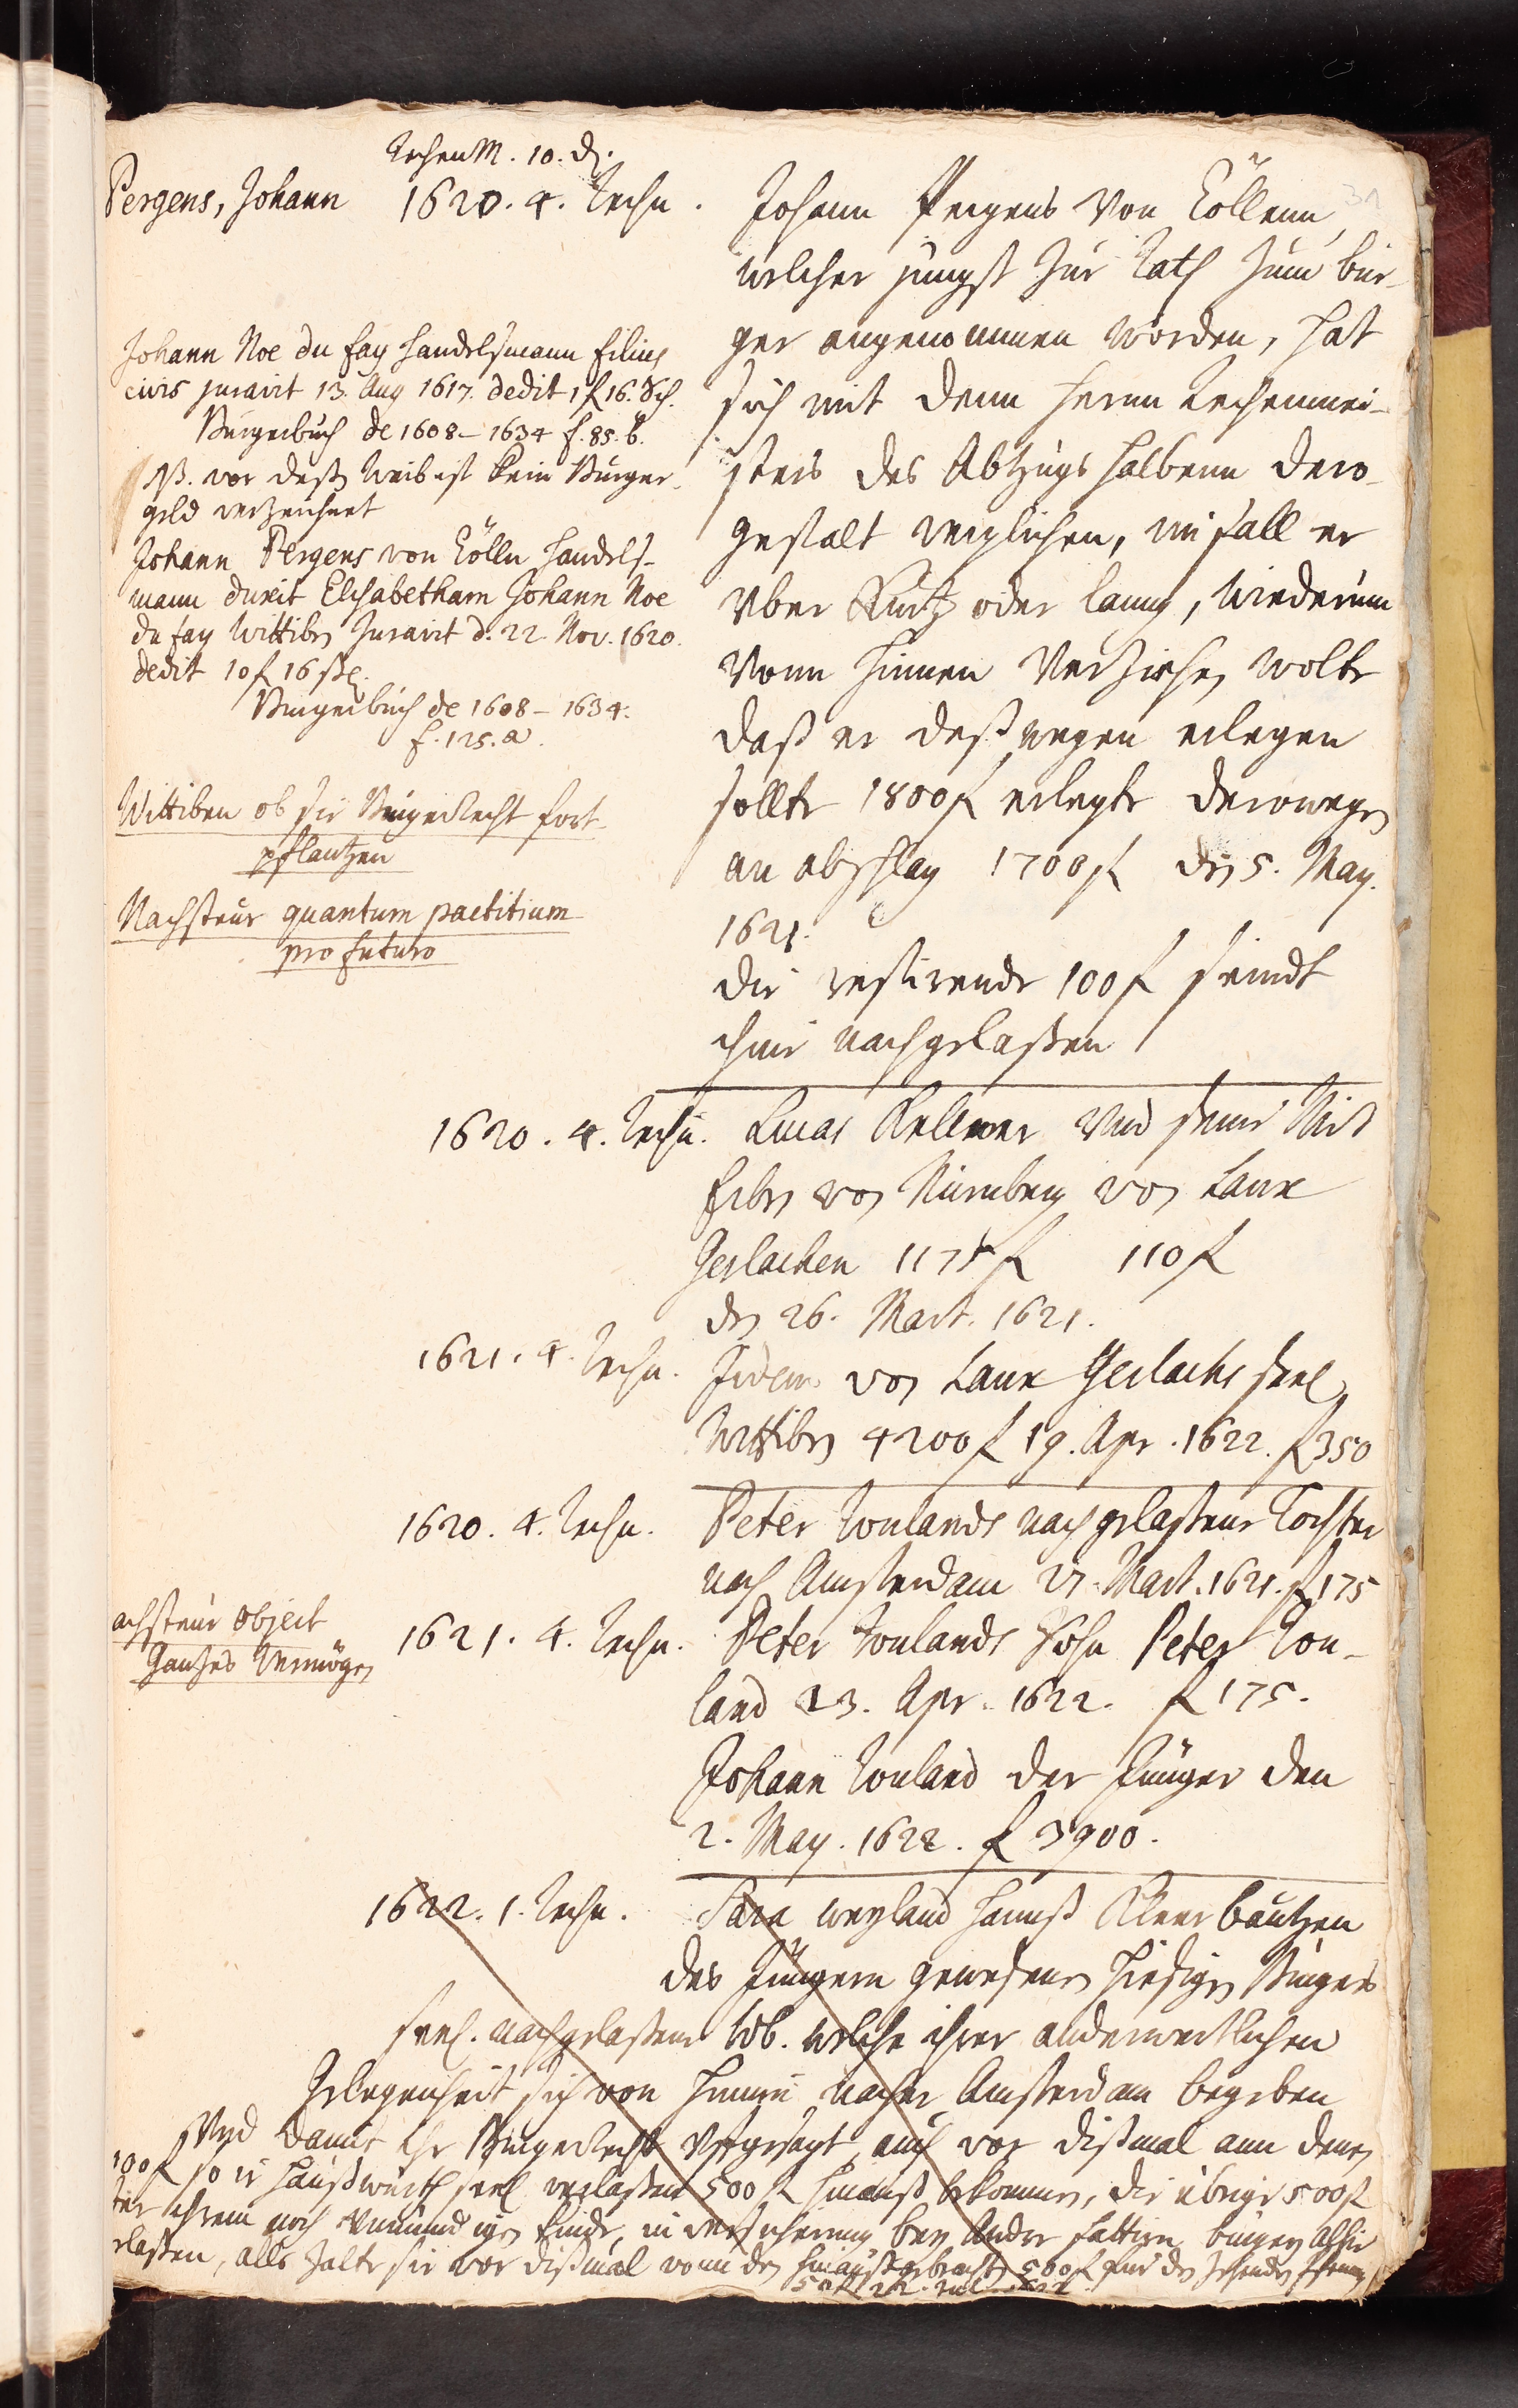 RechenM. 10. d.
31
Pergens, Johann 1620. 4. Rechn.
Johann Pergens von Cöllenn,
welcher jüngst Jür Rath zum bür-
ger angenommen worden, hat
sich mit denn Herrn Rechenmei-
stern des Abzugs halbenn dero-
gestalt verglichen, im fall er
vber Kurtz oder lanng, wiederumb
vonn hinnen verziehen wolte
daß er deßwegen erlegen
sollte 1800 f erlegte derowegen
an abschlag 1700 f den 5. May.
1621.
die restirende 100 f seindt
ihme nachgelaßen
Johann Noe du fay Handelsmann filius
civis juravit 13. Aug 1617. dedit 1 f 16. Sch.
Burgerbuch de 1608 – 1634 f. 85. b.
NB. vor deß Weib ist kein Burger-
geld verzeichnet
Johann Pergens von Cölln Handels-
mann duxit Elisabetham Johann Noe
du fay Wittibn Juravit d. 22. Nov. 1620.
dedit 10 f 16 ß.
Burgerbuch de 1608 – 1634.
f. 125. a.
Wittiben ob sie Burgerrecht fort-
pflantzen
Nachsteur quantum pactitium
pro futuro
1620. 4. Rechn. Lucas Kellner vnd seine Mit
Erben von Nürnberg von Laux
Gerlachen 1175 f 110 f
den 26. Mart. 1621.
1621. 4. Rechn. Jidem von Laux Gerlachs seel
Wittiben 4200 f 19. Apr. 1622. f 350
1620. 4. Rechn. Peter Roulands nachgelaßene Tochter
nach Amsterdam 27. Mart. 1621. f 175
achsteur object
Gantzes Vermögen
1621. 4. Rechn. Peter Roulands Sohn Peter Rou-
land 23. Apr. 1622. f 175.
Johann Rouland der Jünger den
2. May. 1622. f 3900.
1622. 1. Rechn. Sara weyland Hannß Kleer bautzen
des Jüngern gewesenen hiesigen Burgers
seel. nachgelaßene Wb. welche ihrer anderwertlichen
Gelegenheit sich von hinnen nacher Amsterdam begeben
Vnd damit ihr Burgerrecht vffgesagt, auch vor dißmal ann denen
100 f so ir Haußwürth seel verlaßen 500 f hinauß bekommen, die übrige 500 f
ihrem noch vnmündigen Kinde, in versicherung bey Andre bürgern Alhie
rlaßen, alß zalte sie vor dißmal vonn den hinaußgebrachten 500 f für den zehenden Pfennig
50 f